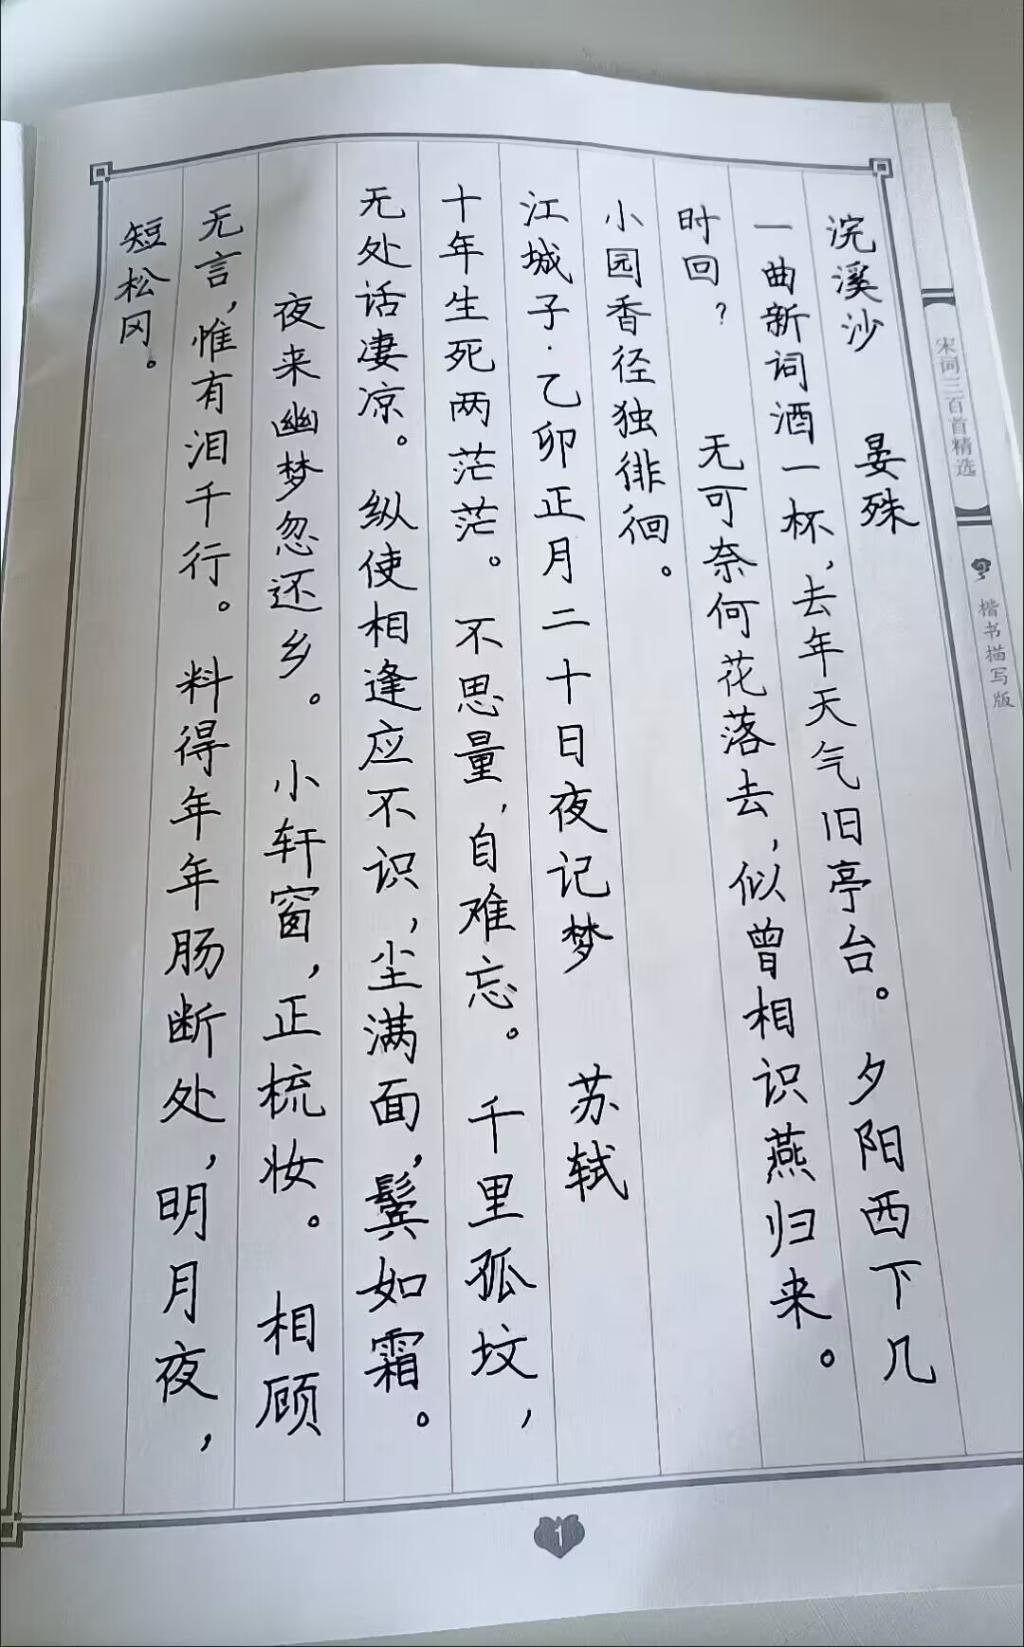 宋词三百首精选
楷书描写版
浣溪沙 晏殊
一曲新词酒一杯，去年天气旧亭台。夕阳西下几
时回？ 无可奈何花落去，似曾相识燕归来。
小园香径独徘徊。
江城子·乙卯正月二十日夜记梦 苏轼
十年生死两茫茫。不思量，自难忘。千里孤坟，
无处话凄凉。纵使相逢应不识，尘满面，鬓如霜。
夜来幽梦忽还乡。小轩窗，正梳妆。相顾
无言，惟有泪千行。料得年年肠断处，明月夜，
短松冈。
1